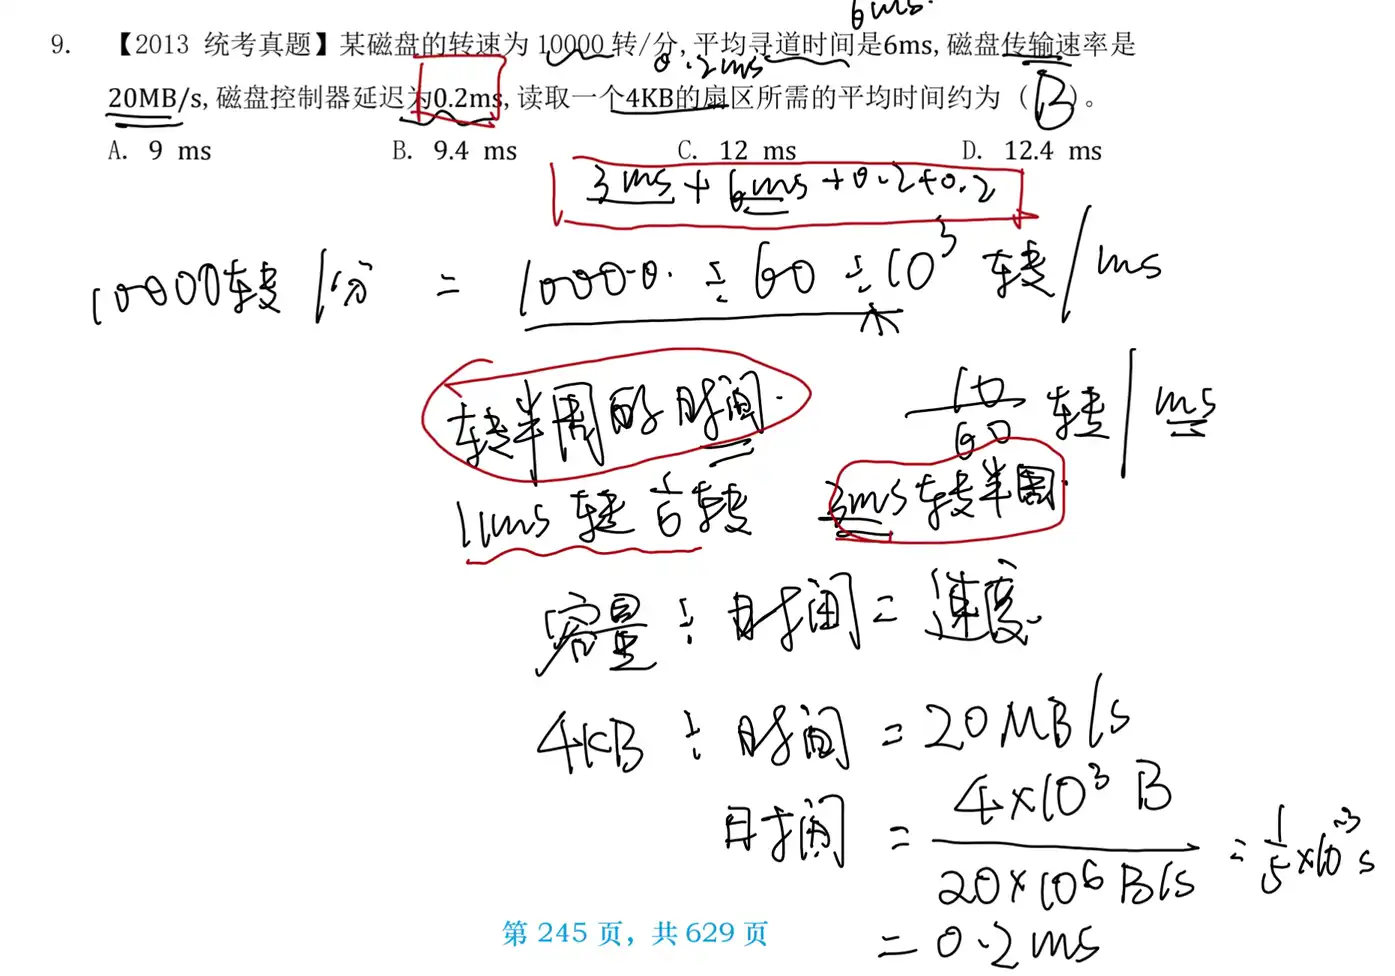 6ms.
9. 【2013 统考真题】某磁盘的转速为 10000 转/分,平均寻道时间是6ms,磁盘传输速率是
0.2ms
20MB/s,磁盘控制器延迟为0.2ms,读取一个4KB的扇区所需的平均时间约为（B）。
A. 9 ms B. 9.4 ms C. 12 ms D. 12.4 ms
3ms + 6ms + 0.2+0.2
10000转/分 = 10000 ÷ 60 ÷ 10³ 转/ms
转半周的时间 10/60 转/ms
1ms 转 1/6 转 3ms 转半周
容量 ÷ 时间 = 速度
4KB ÷ 时间 = 20MB/s
时间 = 4×10³ B / 20×10⁶ B/s = 1/5 ×10⁻³ s
= 0.2ms
第 245 页，共 629 页